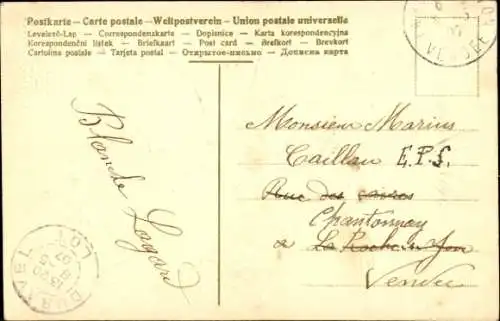 Postkarte — Carte postale — Weltpostverein — Union postale universelle
Levelező-Lap — Correspondenzkarte — Dopisnice — Karta korespondencyjna
Korespondenční lístek — Briefkaart — Post card — Brefkort — Brevkort
Cartolina postale — Tarjeta postal — Открытое-письмо — Дописна карта
Blanche Lagard
Monsieur Marius
Caillau E.P.S.
Rue des
Chantonnay
à La Roche-s-Yon
Vendée
DURAVEL LOT
VENDEE